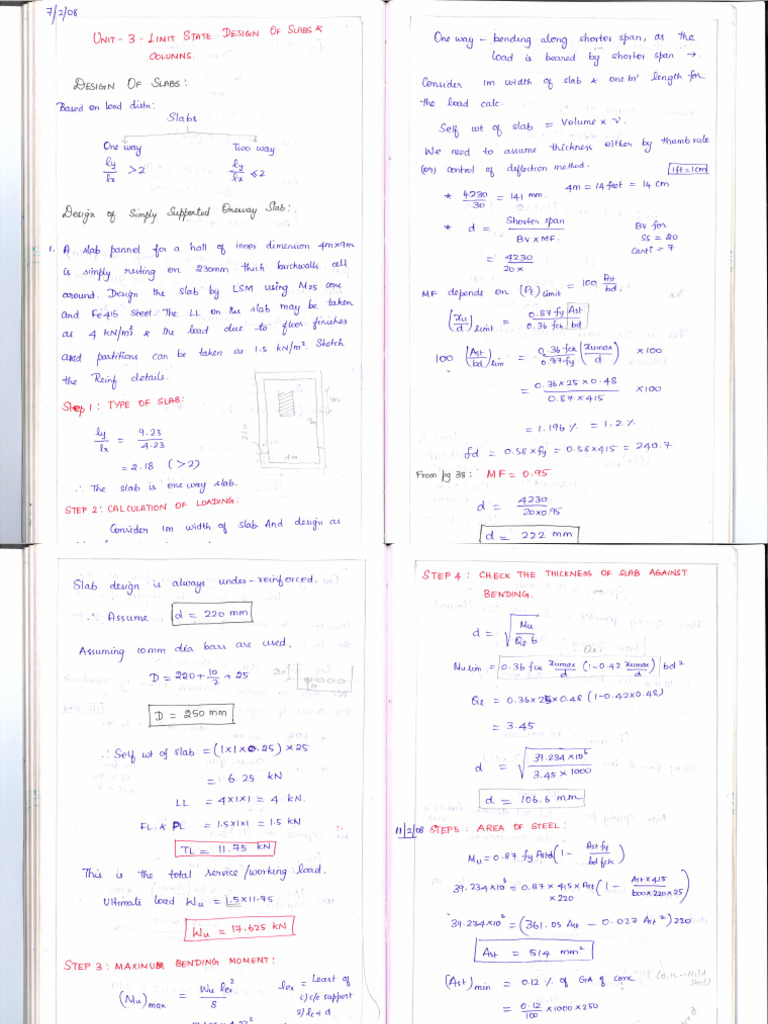 7/2/08
UNIT - 3 - LIMIT STATE DESIGN OF SLABS &
COLUMNS.
DESIGN OF SLABS:
Based on load distn:
Slabs
One way Two way
ly/lx >2 ly/lx ≤2
Design of Simply Supported Oneway Slab:
1. A slab pannel for a hall of inner dimension 4mx9m
is simply resting on 230mm thick brickwalls all
around. Design the slab by LSM using M25 conc
and Fe415 Steel. The LL on the slab may be taken
as 4 kN/m² & the load due to floor finishes
and partitions can be taken as 1.5 kN/m². Sketch
the Reinf details.
Step 1: TYPE OF SLAB:
ly/lx = 9.23/4.23
= 2.18 (>2)
∴ The slab is one way slab.
4m
STEP 2: CALCULATION OF LOADING:
Consider 1m width of slab. And design as
One way - bending along shorter span, as the
load is beared by shorter span →
Consider 1m width of slab & one 'm' length for
the load calc.
Self wt of slab = Volume x γ.
We need to assume thickness either by thumb rule
(or) control of deflection method. 1ft=1cm
* 4230/30 = 141 mm. 4m = 14 feet = 14 cm
* d = Shorter span/BV x MF. BV for
SS = 20
Canti = 7
= 4230/20 x
MF depends on (Pt)limit = 100 Ast/bd.
(xu/d)limit = 0.87 fy Ast/0.36 fck bd
100 (Ast/bd)lim = 0.36 fck/0.87 fy (xumax/d) x100
= 0.36 x 25 x 0.48/0.87 x 415 x100
= 1.196 % = 1.2 %
fd = 0.58 x fy = 0.58 x 415 = 240.7
From pg 38: MF = 0.95
d = 4230/20x0.95
d = 222 mm
Slab design is always under-reinforced.
∴ Assume d = 220 mm
Assuming 10mm dia bars are used,
D = 220 + 10/2 + 25
D = 250 mm
∴ Self wt of slab = (1x1x0.25) x 25
= 6.25 kN
LL = 4x1x1 = 4 kN.
FL & PL = 1.5x1x1 = 1.5 kN
TL = 11.75 kN
This is the total service/working load.
Ultimate load Wu = 1.5x11.75
Wu = 17.625 kN
STEP 3: MAXIMUM BENDING MOMENT:
(Mu)max = Wu lex²/8 lex = Least of
1) c/c support
2) lc + d
STEP 4: CHECK THE THICKNESS OF SLAB AGAINST
BENDING.
d = √Mu/Qe b
Mu lim = 0.36 fck xumax/d (1-0.42 xumax/d) bd²
Qe = 0.36x25x0.48 (1-0.42x0.48)
= 3.45
d = √39.234 x10⁶/3.45 x 1000
d = 106.6 mm
11/2/08 STEP5: AREA OF STEEL:
Mu = 0.87 fy Ast d (1 - Ast fy/bd fck)
39.234x10⁶ = 0.87 x 415 x Ast (1 - Ast x 415/1000x220x25)
x 220
39.234x10⁶ = (361.05 Ast - 0.027 Ast²) 220
Ast = 514 mm²
(Ast)min = 0.12 % of GA of conc
= 0.12/100 x1000 x 250